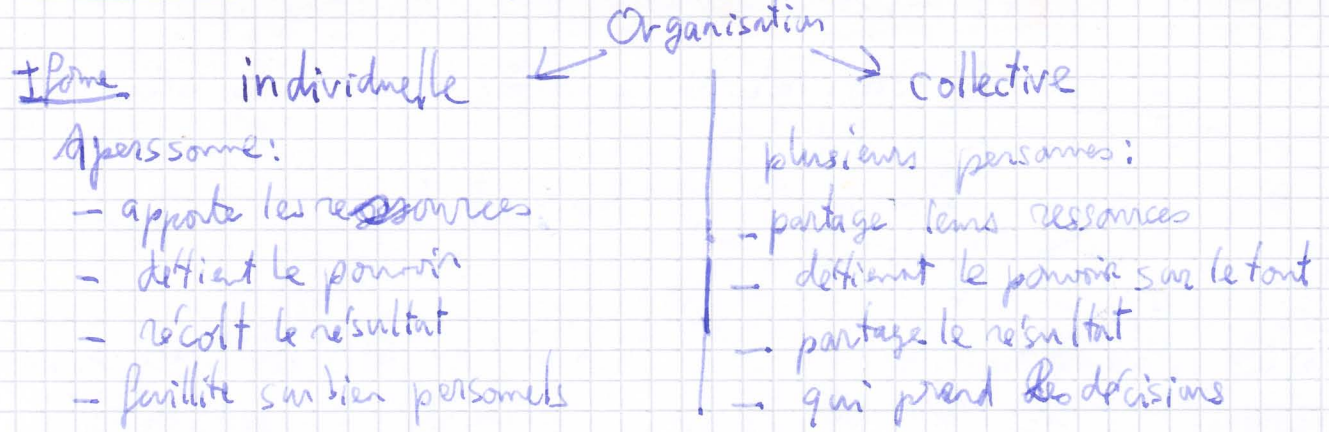 Organisation
I forme individuelle
collective
1 perssonne:
- apporte les ressources
- dettient le pouvoir
- récolt le résultat
- faillite sur bien personnels
plusieurs personnes:
- partage leurs ressources
- dettienent le pouvoir sur le tout
- partage le résultat
- qui prend les décisions